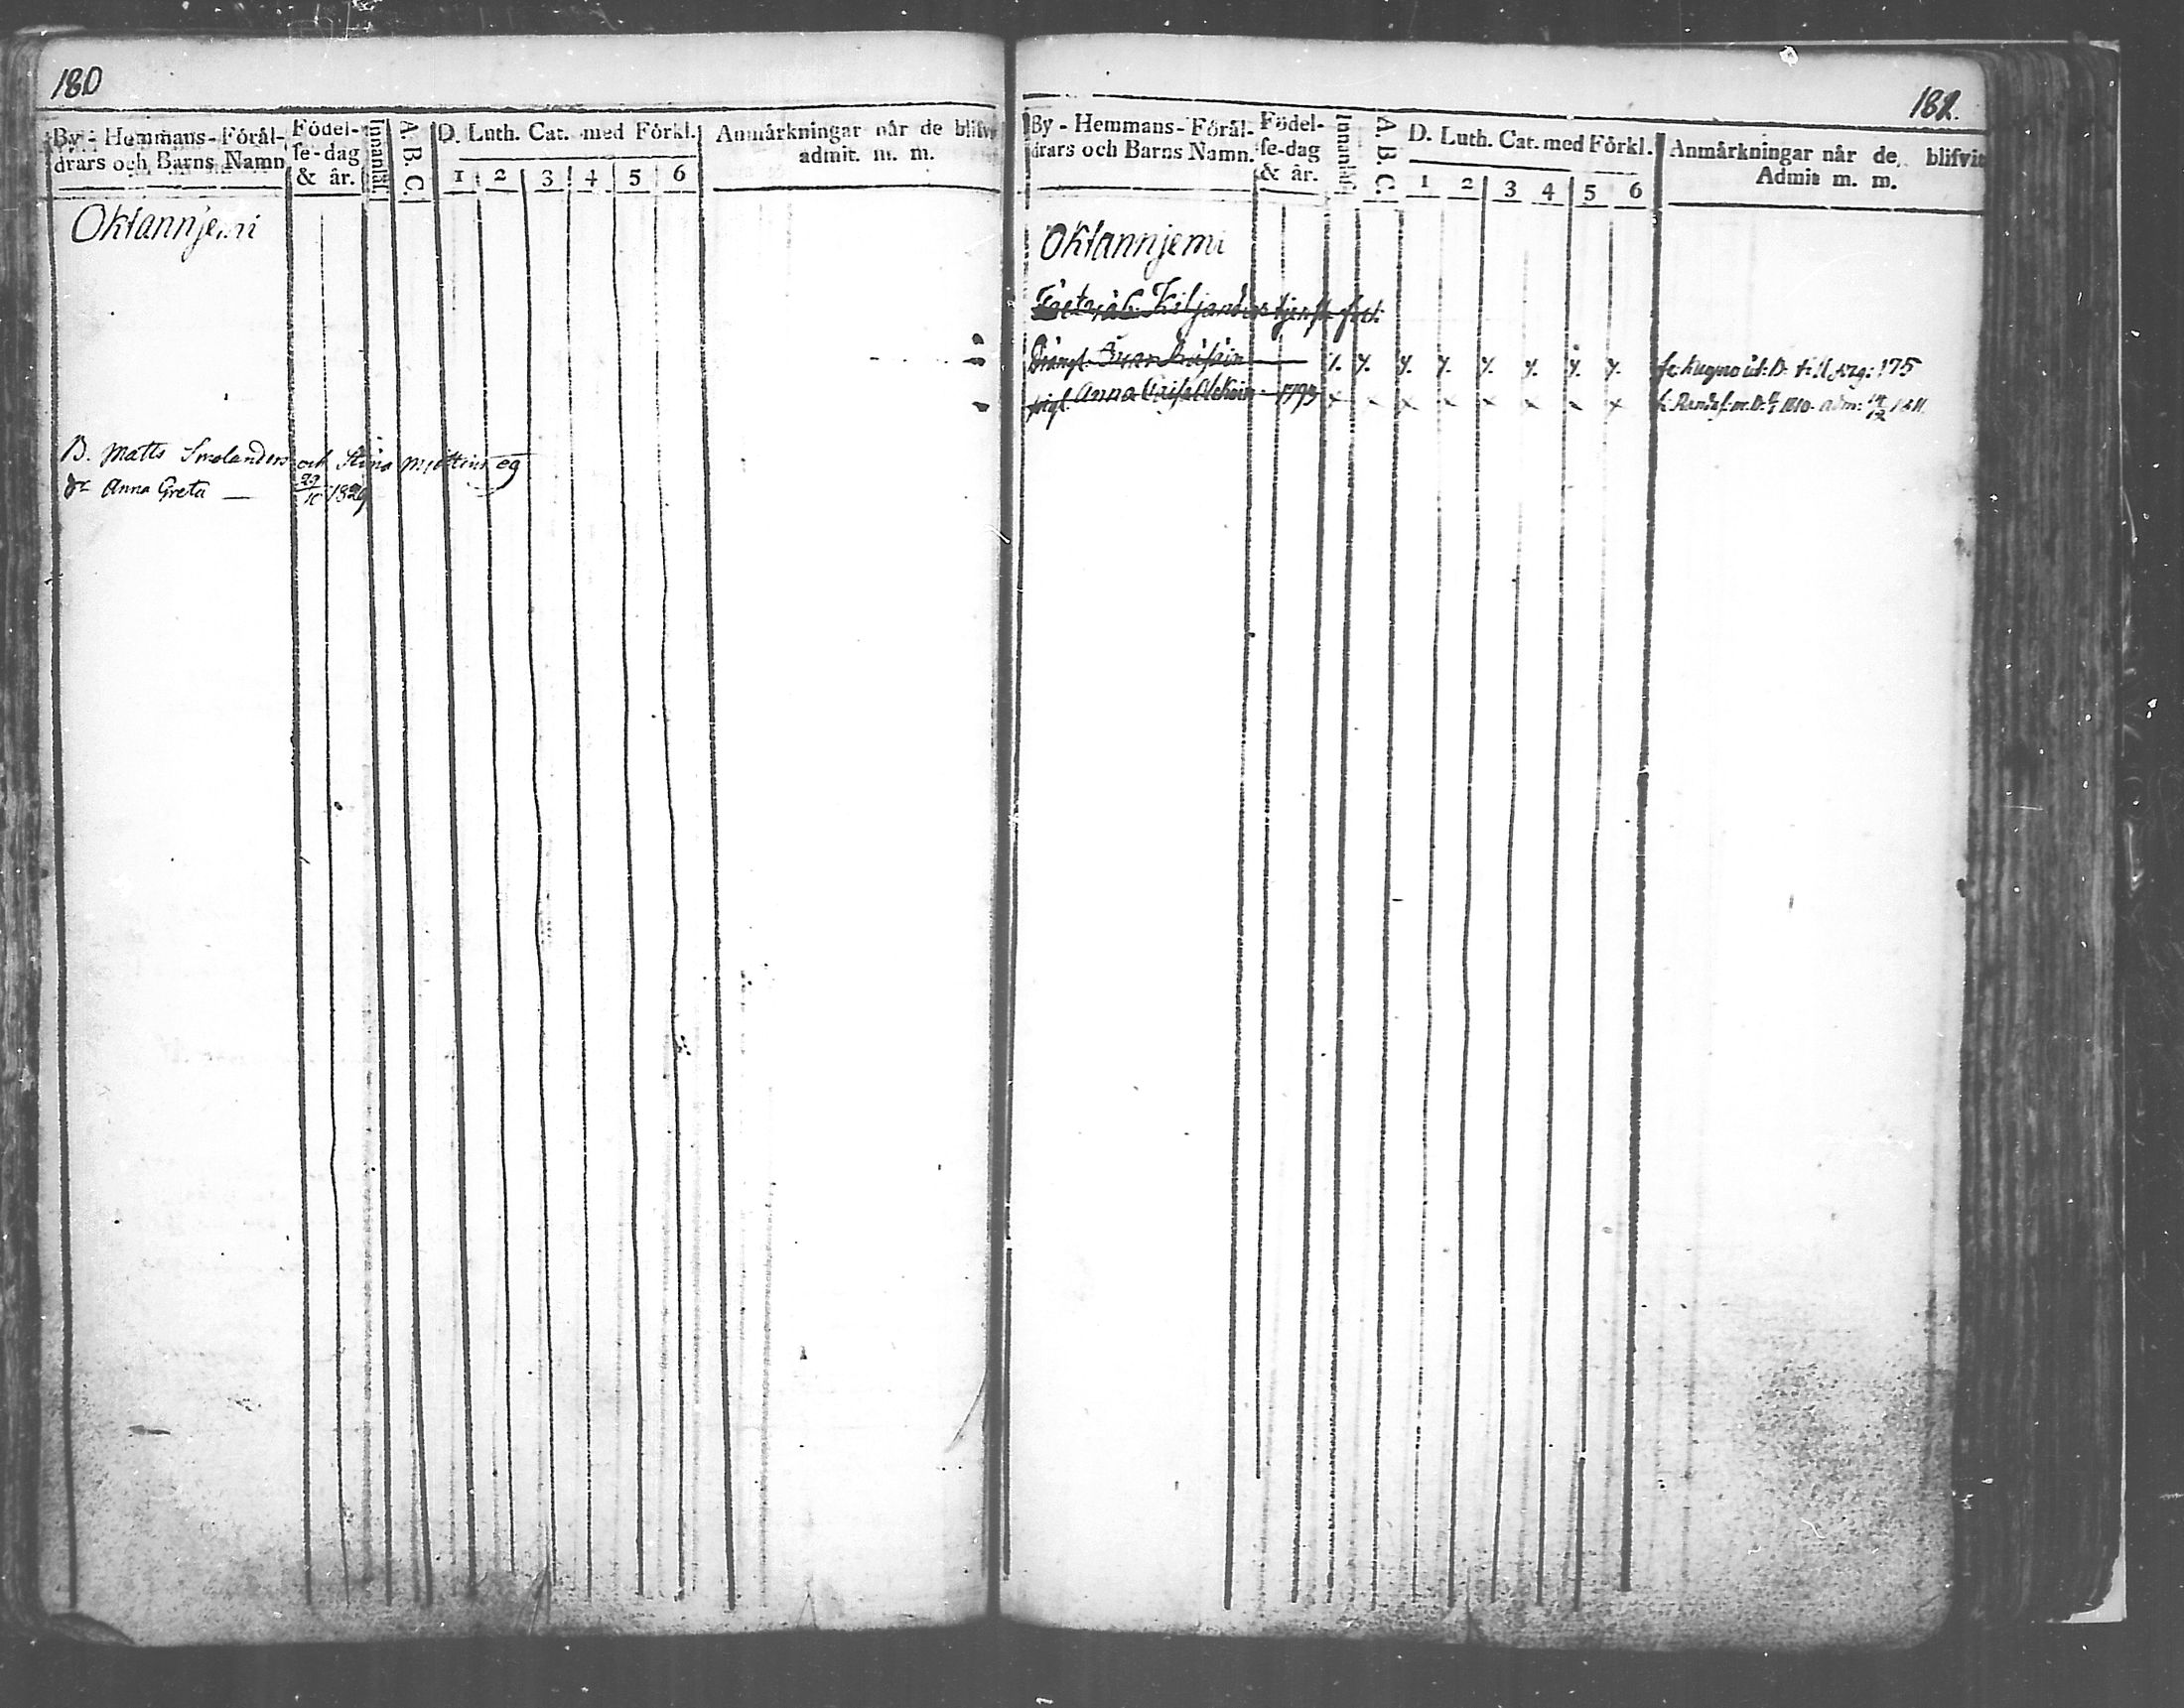 180
By - Hemmans - Förål-
drars och Barns Namn
Födel-
se-dag
& år.
Innantil
A. B. C.
D. Luth. Cat. med Förkl.
1 2 3 4 5 6
Anmårkningar når de blifvi
admit. m. m.
Oktannjemi
B. Matts Smolanders och Stina
dr Anna Greta — 29/10 1829
181.
By - Hemmans - Förål-
drars och Barns Namn.
Födel-
se-dag
& år.
Innantil
A. B. C.
D. Luth. Cat. med Förkl.
1 2 3 4 5 6
Anmårkningar når de, blifvit
Admit m. m.
Oktannjemi
Kiljanders tjenste folk
Drängl. Ivar x. x. x. x. x. x. x. x. 175
pigl. Anna Caisa 1793 x x x x x x x x 1810. adm: 1811.